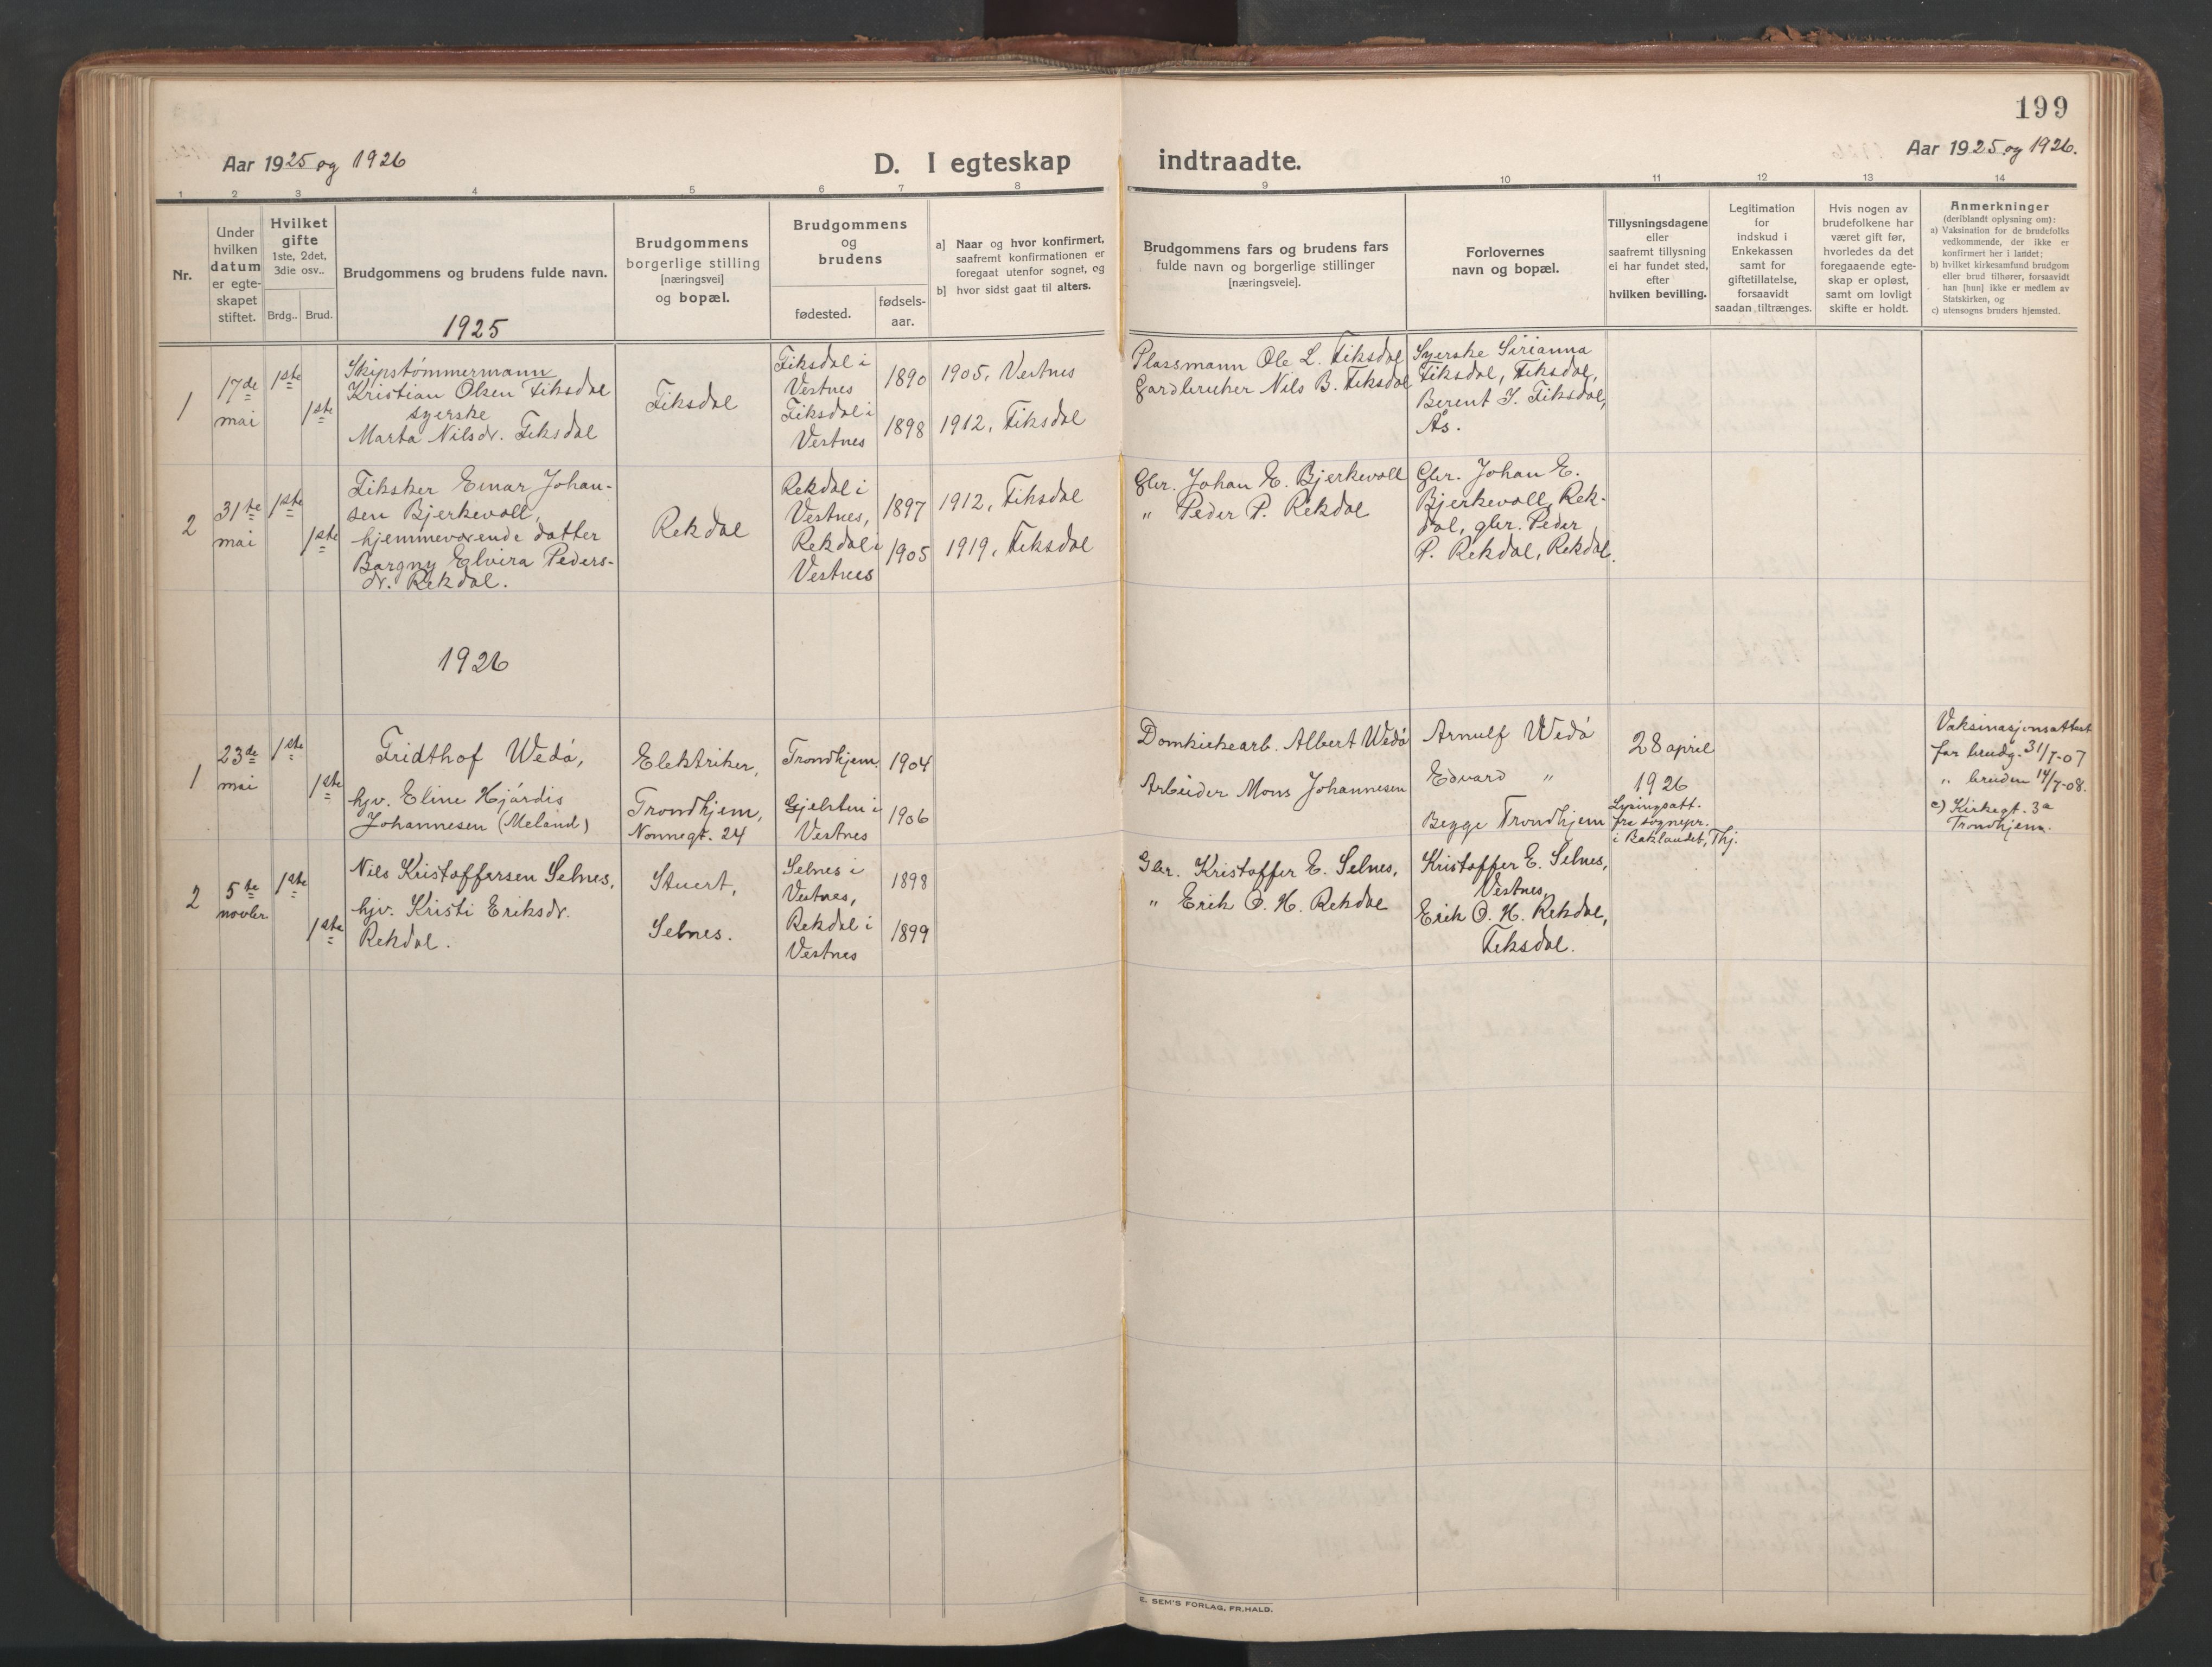 199
Aar 1925 og 1926
D. I egteskap indtraadte.
Aar 1925 og 1926.
1 2 3 4 5 6 7 8 9 10 11 12 13 14
Nr.
Under
hvilken
datum
er egte-
skapet
stiftet.
Hvilket
gifte
1ste, 2det,
3die osv..
Brdg.. Brud.
Brudgommens og brudens fulde navn.
Brudgommens
borgerlige stilling
[næringsvei]
og bopæl.
Brudgommens
og
brudens
fødested.
fødsels-
aar.
a] Naar og hvor konfirmert,
saafremt konfirmationen er
foregaat utenfor sognet, og
b] hvor sidst gaat til alters.
Brudgommens fars og brudens fars
fulde navn og borgerlige stillinger
[næringsveie].
Forlovernes
navn og bopæl.
Tillysningsdagene
eller
saafremt tillysning
ei har fundet sted,
efter
hvilken bevilling.
Legitimation
for
indskud i
Enkekassen
samt for
giftetillatelse,
forsaavidt
saadan tiltrænges.
Hvis nogen av
brudefolkene har
været gift før,
hvorledes da det
foregaaende egte-
skap er opløst,
samt om lovligt
skifte er holdt.
Anmerkninger
(deriblandt oplysning om):
a) Vaksination for de brudefolks
vedkommende, der ikke er
konfirmert her i landet;
b) hvilket kirkesamfund brudgom
eller brud tilhører, forsaavidt
han [hun] ikke er medlem av
Statskirken, og
c) utensogns bruders hjemsted.
1925
1
17de
mai
1ste
1ste
Skipstømmermann
Kristian Olsen Fiksdal
syerske
Marta Nilsdr. Fiksdal
Fiksdal
Fiksdal i
Vestnes
Fiksdal i
Vestnes
1890
1898
1905, Vestnes
1912, Fiksdal
Plassmann Ole L. Fiksdal
Gardbruker Nils B. Fiksdal
Syerske Sirianna
Fiksdal, Fiksdal,
Berent J. Fiksdal,
Ås.
2
31te
mai
1ste
1ste
Fisker Einar Johan-
sen Bjerkevoll,
hjemmeværende datter
Borgny Elvira Peders-
dr. Rekdal.
Rekdal
Rekdal i
Vestnes,
Rekdal i
Vestnes
1897
1905
1912, Fiksdal
1919, Fiksdal
Gbr. Johan E. Bjerkevoll
" Peder P. Rekdal
Gbr. Johan E.
Bjerkevoll, Rek-
dal, gbr. Peder
P. Rekdal, Rekdal.
1926
1
23de
mai
1ste
1ste
Fridthof Wedø,
hjv. Eline Hjørdis
Johannesen (Meland)
Elektriker,
Trondhjem,
Nonnegt. 24
Trondhjem
Gjelsten i
Vestnes
1904
1906
Domkirkearb. Albert Wedø
Arbeider Mons Johannesen
Arnulf Wedø
Edvard "
Begge Trondhjem
28 april
1926
Lysingsatt.
fra sognepr.
i Baklandet, Thj.
Vaksinasjonsattest
for brudg. 31/7-07
" bruden 14/7-08.
c) Kirkegt. 3a
Trondhjem.
2
5te
novbr
1ste
1ste
Nils Kristoffersen Selnes,
hjv. Kristi Eriksdr.
Rekdal.
Stuert,
Selnes.
Selnes i
Vestnes,
Rekdal i
Vestnes
1898
1899
Gbr. Kristoffer E. Selnes,
" Erik O. H. Rekdal
Kristoffer E. Selnes,
Vestnes,
Erik O. H. Rekdal,
Fiksdal.
E. SEM'S FORLAG, FR.HALD.